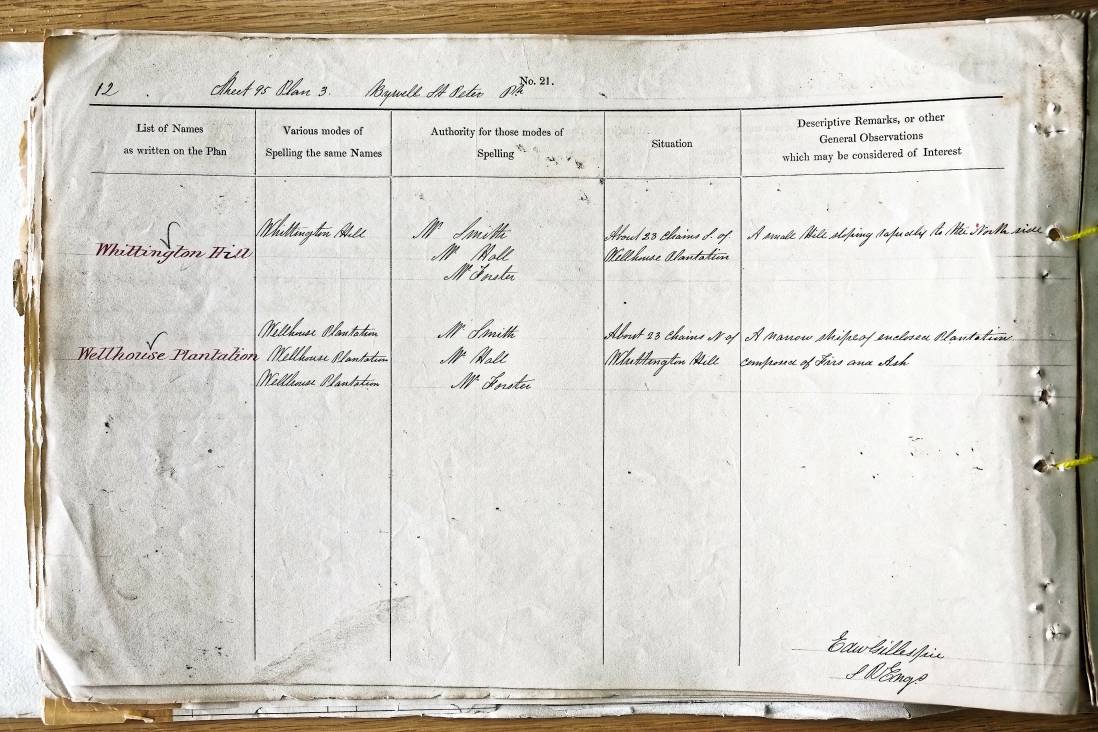 12 Sheet 95 Plan 3. Bywell St Peter Ph No. 21.
List of Names
as written on the Plan
Various modes of
Spelling the same Names
Authority for those modes of
Spelling
Situation
Descriptive Remarks, or other
General Observations
which may be considered of Interest
Whittington Hill
Whittington Hill
Mr Smith
Mr Hall
Mr Forster
About 23 Chains S. of
Wellhouse Plantation
A small Hill sloping rapidly to the North side
Wellhouse Plantation
Wellhouse Plantation
Wellhouse Plantation
Wellhouse Plantation
Mr Smith
Mr Hall
Mr Forster
About 23 Chains N of
Whittington Hill
A narrow stripe of enclosed Plantation
composed of Firs and Ash
Edw Gillespie
S R Engs.